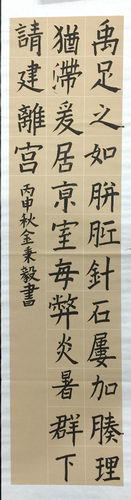 禹足之如胼胝針石屢加腠理
猶滯爰居京室每弊炎暑群下
請建離宮
丙申秋金秉毅書